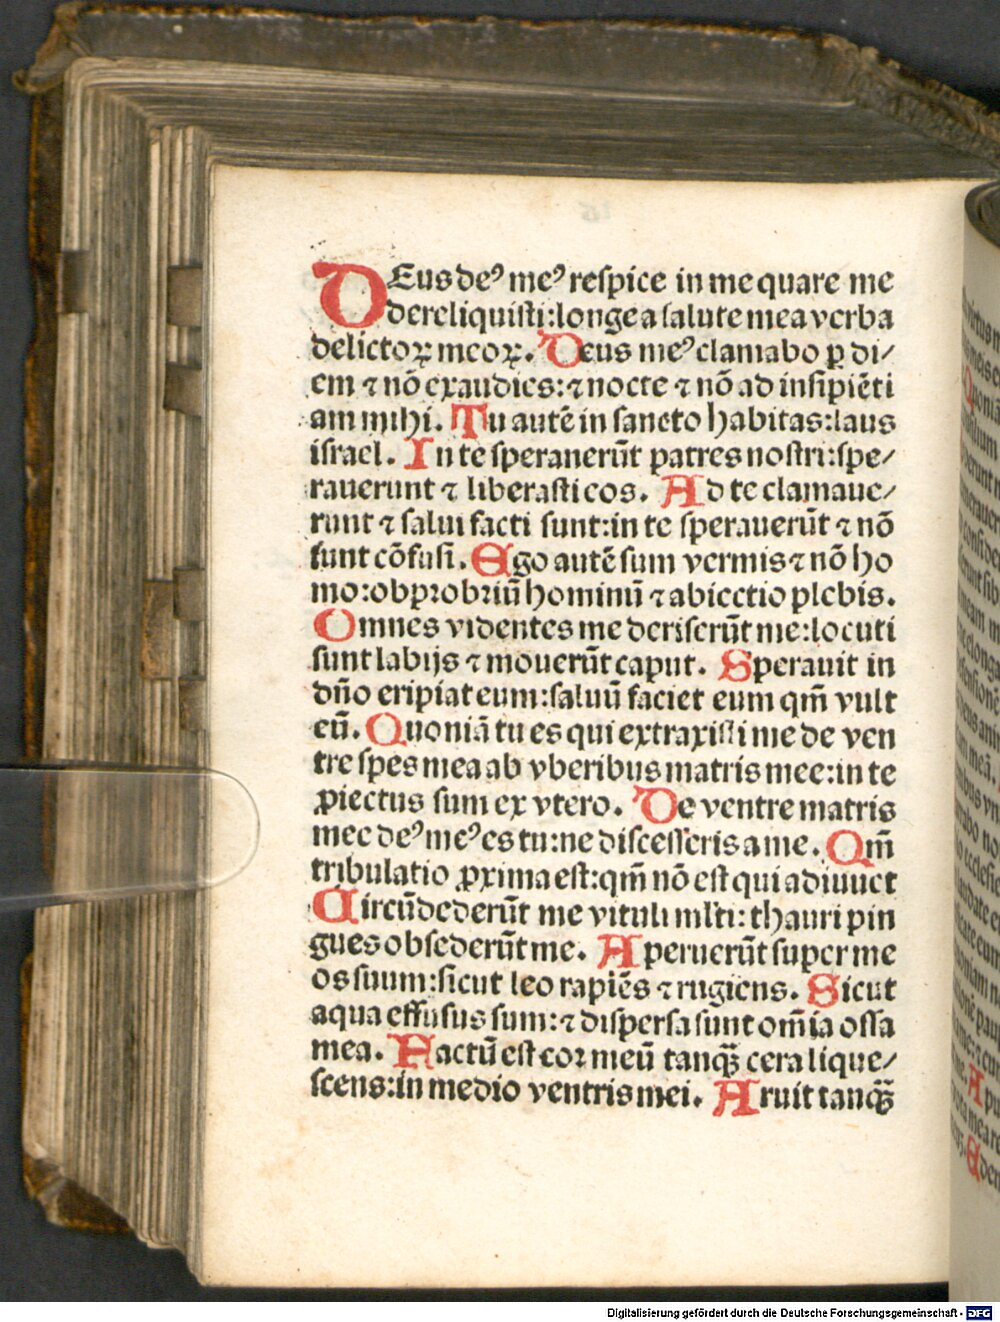 DEus deꝰ meꝰ respice in me quare me
dereliquisti:longe a salute mea verba
delictoꝝ meoꝝ. Deus meꝰ clamabo ꝑ di/
em ⁊ nõ exaudies:⁊ nocte ⁊ nõ ad insipiẽti
am mihi. Tu autẽ in sancto habitas:laus
israel. In te speranerũt patres nostri:spe/
rauerunt ⁊ liberasti eos. Ad te clamaue/
runt ⁊ salui facti sunt:in te sperauerũt ⁊ nõ
sunt cõfusi. Ego autẽ sum vermis ⁊ nõ ho
mo:obprobriũ hominũ ⁊ abiectio plebis.
Omnes videntes me deriserũt me:locuti
sunt labijs ⁊ mouerũt caput. Sperauit in
dño eripiat eum:saluũ faciet eum qm̃ vult
eũ. Quoniã tu es qui extraxisti me de ven
tre spes mea ab vberibus matris mee:in te
ꝓiectus sum ex vtero. De ventre matris
mee deꝰ meꝰ es tu:ne discesseris a me. Qm̃
tribulatio ꝓxima est:qm̃ nõ est qui adiuuet
Circũdederũt me vituli ml̃ti: thauri pin
gues obsederũt me. Aperuerũt super me
os suum:sicut leo rapiẽs ⁊ rugiens. Sicut
aqua effusus sum:⁊ dispersa sunt om̃ia ossa
mea. Factũ est cor meũ tanqꝫ̃ cera lique/
scens:in medio ventris mei. Aruit tanqꝫ̃
Digitalisierung gefördert durch die Deutsche Forschungsgemeinschaft - DFG